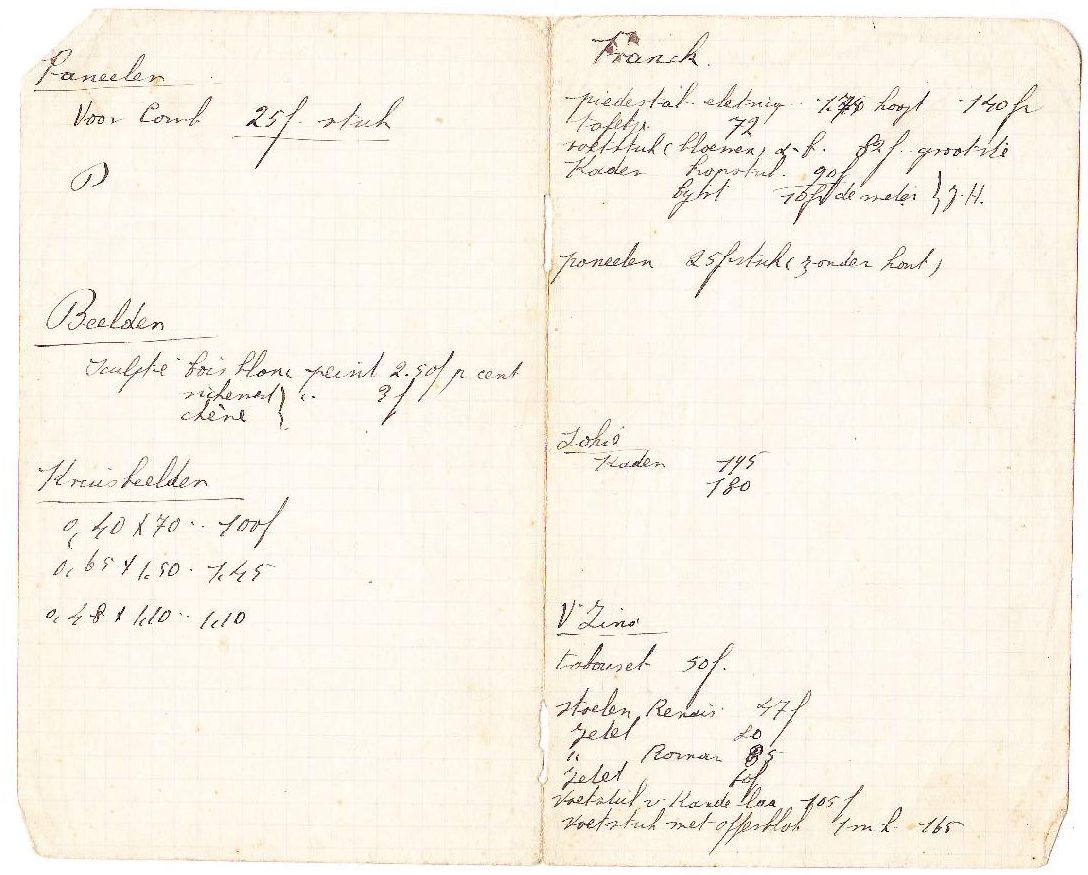 Paneelen
Voor Comb 25f. stuk
P
Beelden
Sculpté bois blanc peint 2.50f p cent
chêne } " 3f
Kruisbeelden
0,40 X 70 .. 100f
0,65 X 1,50 . 1,45
0,48 X 1,10 .. 1,10
Franck.
piedestal hoogt 140 fr
tafeltje 72
voetstuk (bloemen) 82f. grootste
Kader 90f
de meter } z.H.
paneelen 25f stuk (zonder hout)
Kaden 145
180
tabouret 50f.
stoelen Renais 47f
Zetel
" Roman
Zetel
voetstuk v. Kandelaa 105f
voetstuk met offerblok 1 m h 165